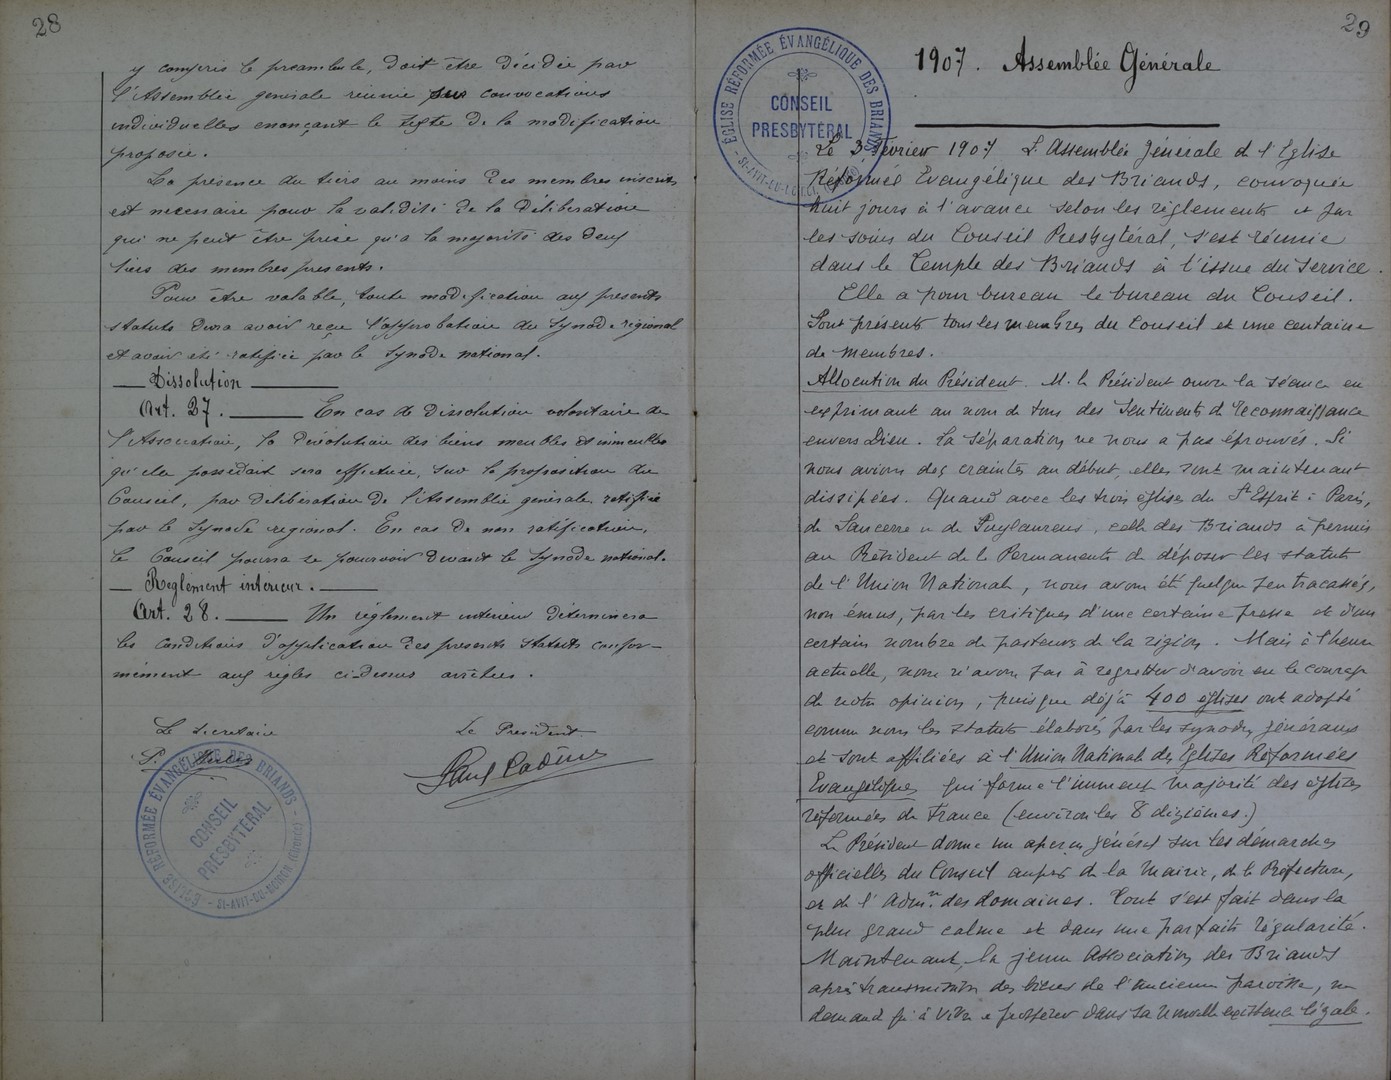 28
y compris le préambule, doit être décidée par
l'Assemblée générale réunie sur convocations
individuelles énonçant le texte de la modification
proposée.
La présence du tiers au moins des membres inscrits
est nécessaire pour la validité de la délibération
qui ne peut être prise qu'à la majorité des deux
tiers des membres présents.
Pour être valable, toute modification aux présents
statuts devra avoir reçu l'approbation du Synode régional
et avoir été ratifiée par le Synode national.
Dissolution
Art. 27. En cas de dissolution volontaire de
l'Association, la dévolution des biens meubles et immeubles
qu'elle possédait sera effectuée, sur la proposition du
Conseil, par délibération de l'Assemblée générale, ratifiée
par le Synode régional. En cas de non ratification,
le Conseil pourra se pourvoir devant le Synode national.
Règlement intérieur.
Art. 28. Un règlement intérieur déterminera
les conditions d'application des présents Statuts confor-
mément aux règles ci-dessus arrêtées.
Le Secrétaire Le Président
ÉGLISE RÉFORMÉE ÉVANGÉLIQUE DES BRIANDS
CONSEIL
PRESBYTÉRAL
29
ÉGLISE RÉFORMÉE ÉVANGÉLIQUE DES BRIANDS
CONSEIL
PRESBYTÉRAL
1907. Assemblée Générale
Le 3 Février 1907 L'Assemblée générale de l'Eglise
Réformée Evangélique des Briands, convoquée
huit jours à l'avance selon les règlements et par
les soins du Conseil Presbytéral, s'est réunie
dans le Temple des Briands à l'issue du service.
Elle a pour bureau le bureau du Conseil.
Sont présents tous les membres du Conseil et une centaine
de membres.
Allocution du Président. M. le Président ouvre la séance en
exprimant au nom de tous des sentiments de reconnaissance
envers Dieu. La séparation ne nous a pas éprouvés. Si
nous avions des craintes au début, elles sont maintenant
dissipées. Quand avec les trois église du St Esprit à Paris,
de Sancerre et de Puylaurens, celle des Briands a permis
au Président de la Permanente de déposer les statuts
de l'Union Nationale, nous avons été quelque peu tracassés,
non émus, par les critiques d'une certaine presse et d'un
certain nombre de pasteurs de la région. Mais à l'heure
actuelle, nous n'avons pas à regretter d'avoir eu le courage
de notre opinion, puisque déjà 400 églises ont adopté
comme nous les statuts élaborés par les synodes généraux
et sont affiliées à l'Union Nationale des Eglises Réformées
Evangéliques qui forme l'immense majorité des églises
réformées de France (environ les 8 dixièmes.)
Le Président donne un aperçu général sur les démarches
officielles du Conseil auprès de la Mairie, de la Préfecture,
et de l'Admn. des domaines. Tout s'est fait dans le
plus grand calme et dans une parfaite régularité.
Maintenant, la jeune Association des Briands
après transmission des biens de l'ancienne paroisse, ne
demande qu'à vivre et prospérer dans sa nouvelle existence légale.